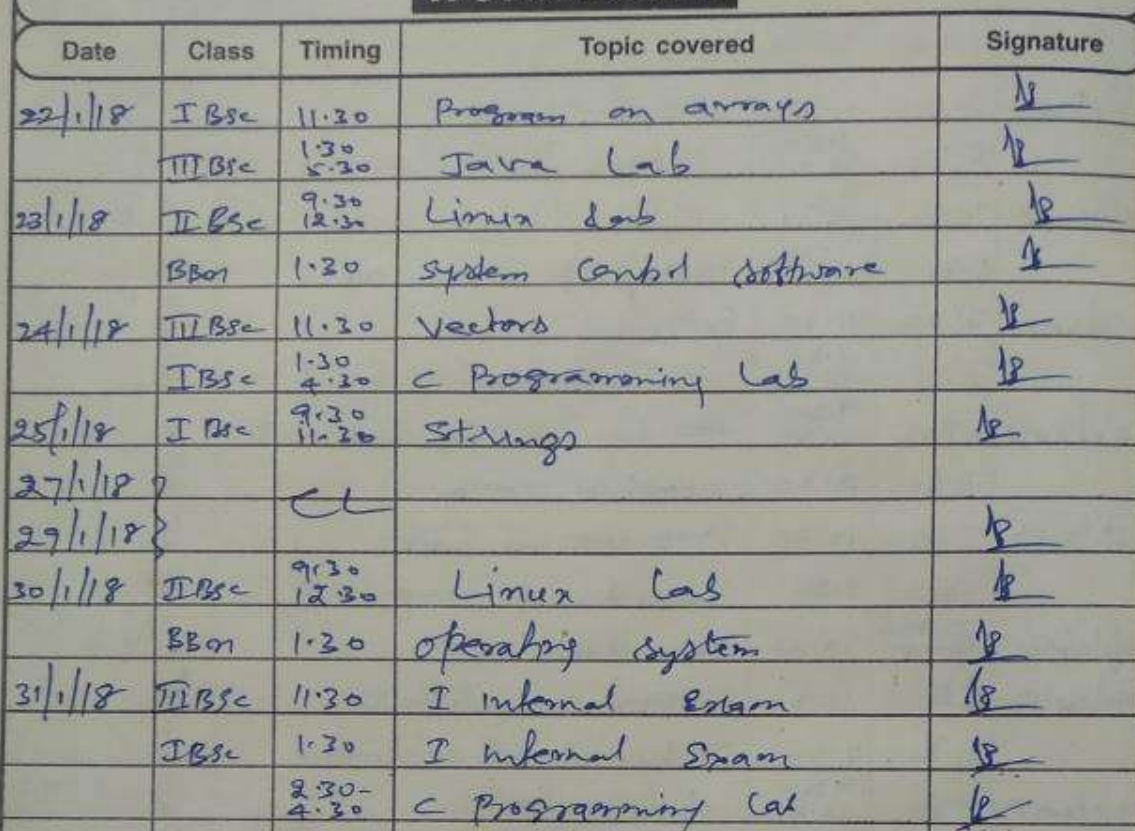 Date Class Timing Topic covered Signature
22/1/18 I BSc 11.30 Program on arrays
III BSc 1.30 5.30 Java Lab
23/1/18 II BSc 9.30 12.30 Linux Lab
BBM 1.30 System Control Software
24/1/18 III BSc 11.30 Vectors
I BSc 1.30 4.30 C Programming Lab
25/1/18 I BSc 9.30 11.30 Strings
27/1/18 } CL
29/1/18 }
30/1/18 II BSc 9.30 12.30 Linux Lab
BBM 1.30 operating system
31/1/18 III BSc 11.30 I internal Exam
I BSc 1.30 I internal Exam
2.30- 4.30 C Programming Lab